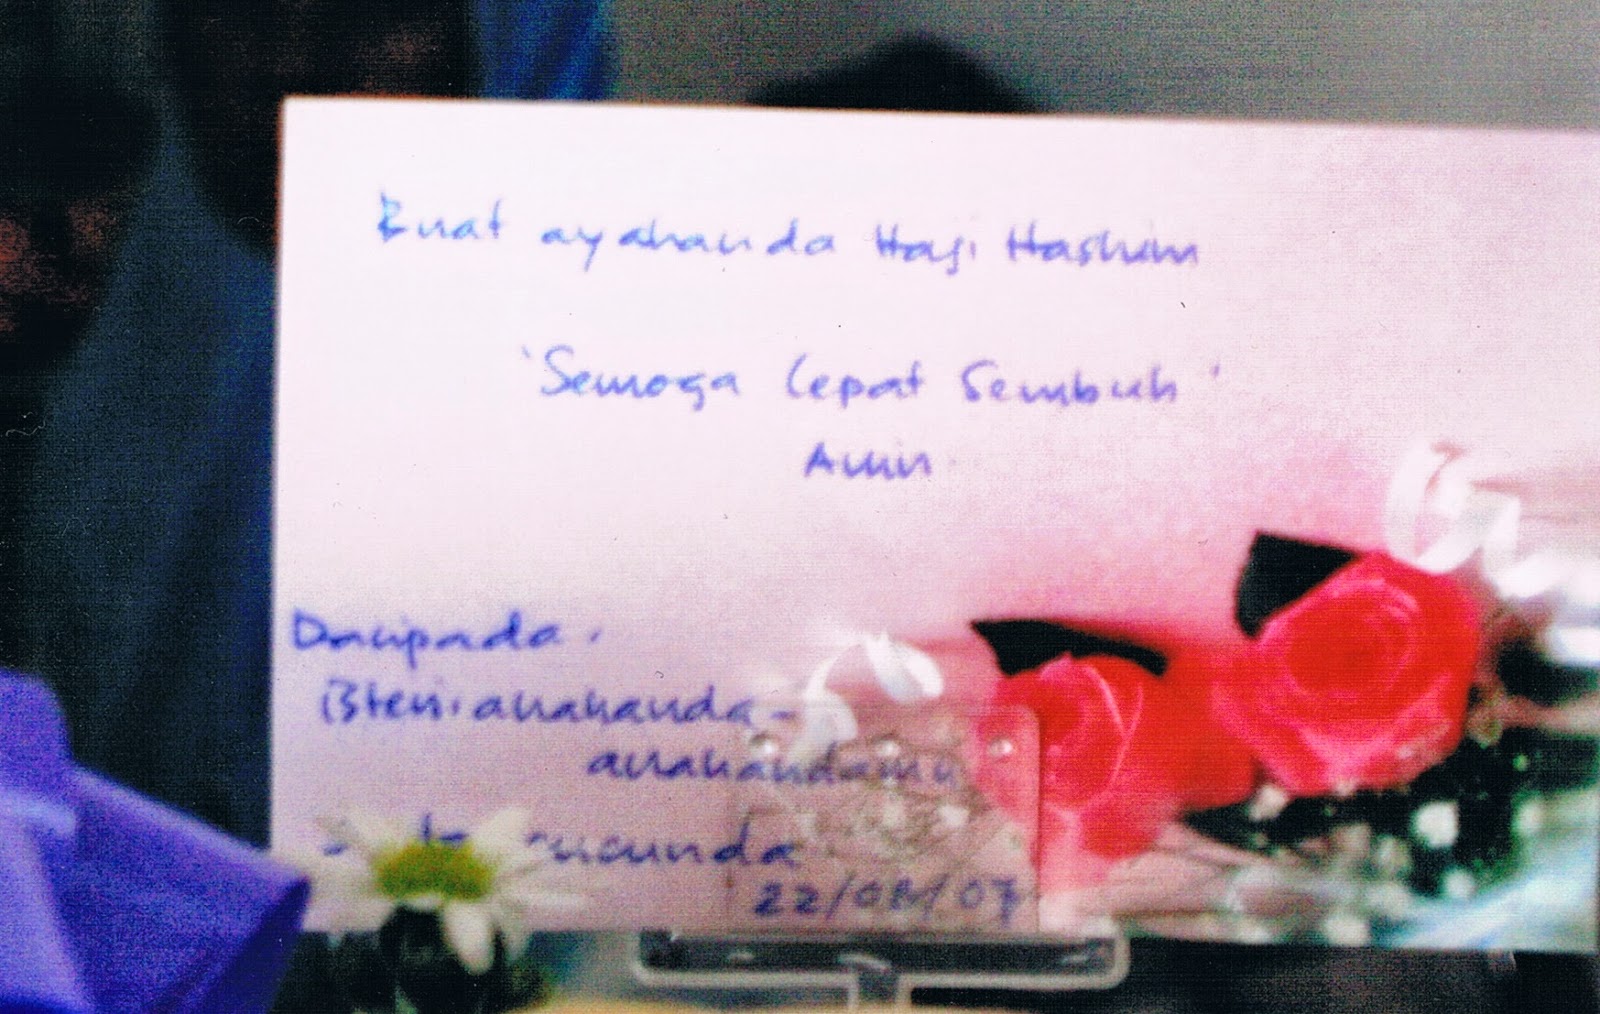 Buat ayahanda Haji Hashim
'Semoga Cepat Sembuh'
Amin
Daripada.
Isteri, anakanda-
anakandamu
cucunda
22/08/07